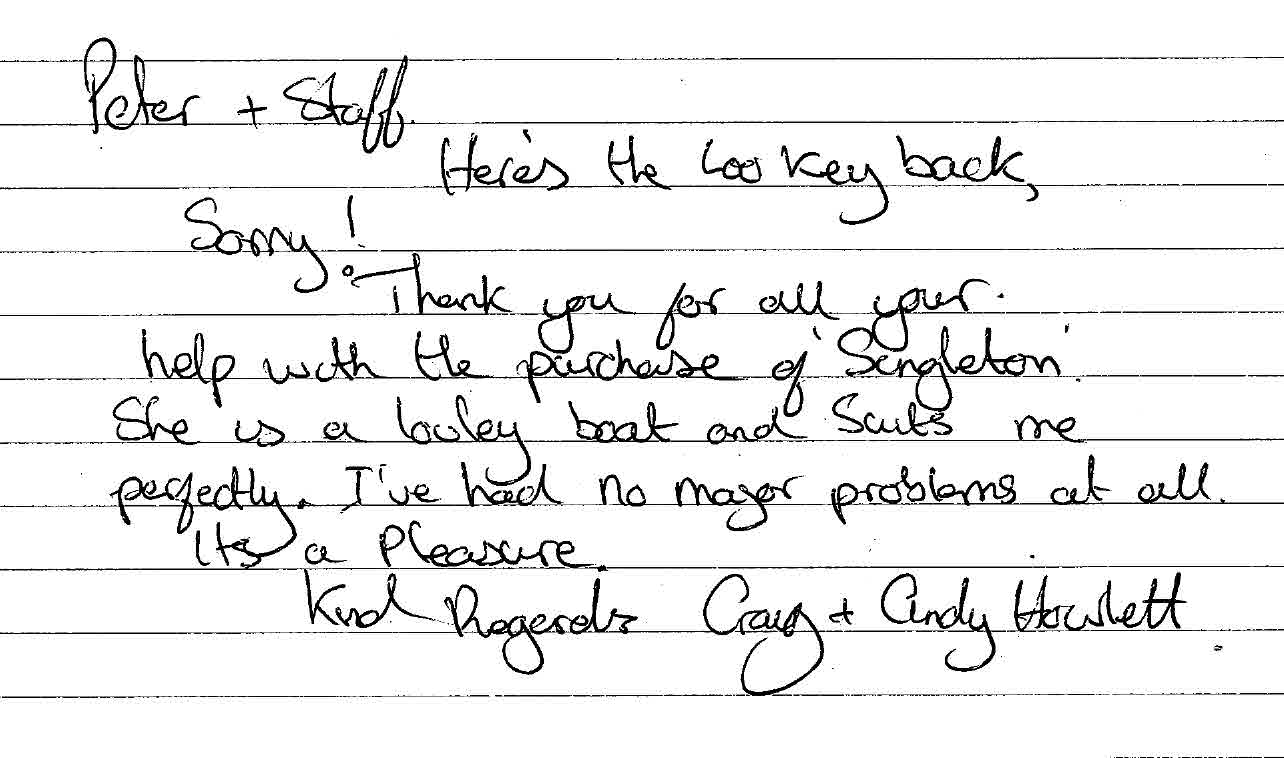 Peter + Staff.
Here's the Loo key back,
Sorry!
Thank you for all your.
help with the purchase of 'Singleton'.
She is a lovley boat and Suits me
perfectly. I've had no major problems at all.
Its a Pleasure.
Kind Regards Craig + Andy Howlett